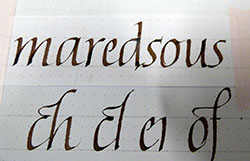 maredsous
ch cl er of